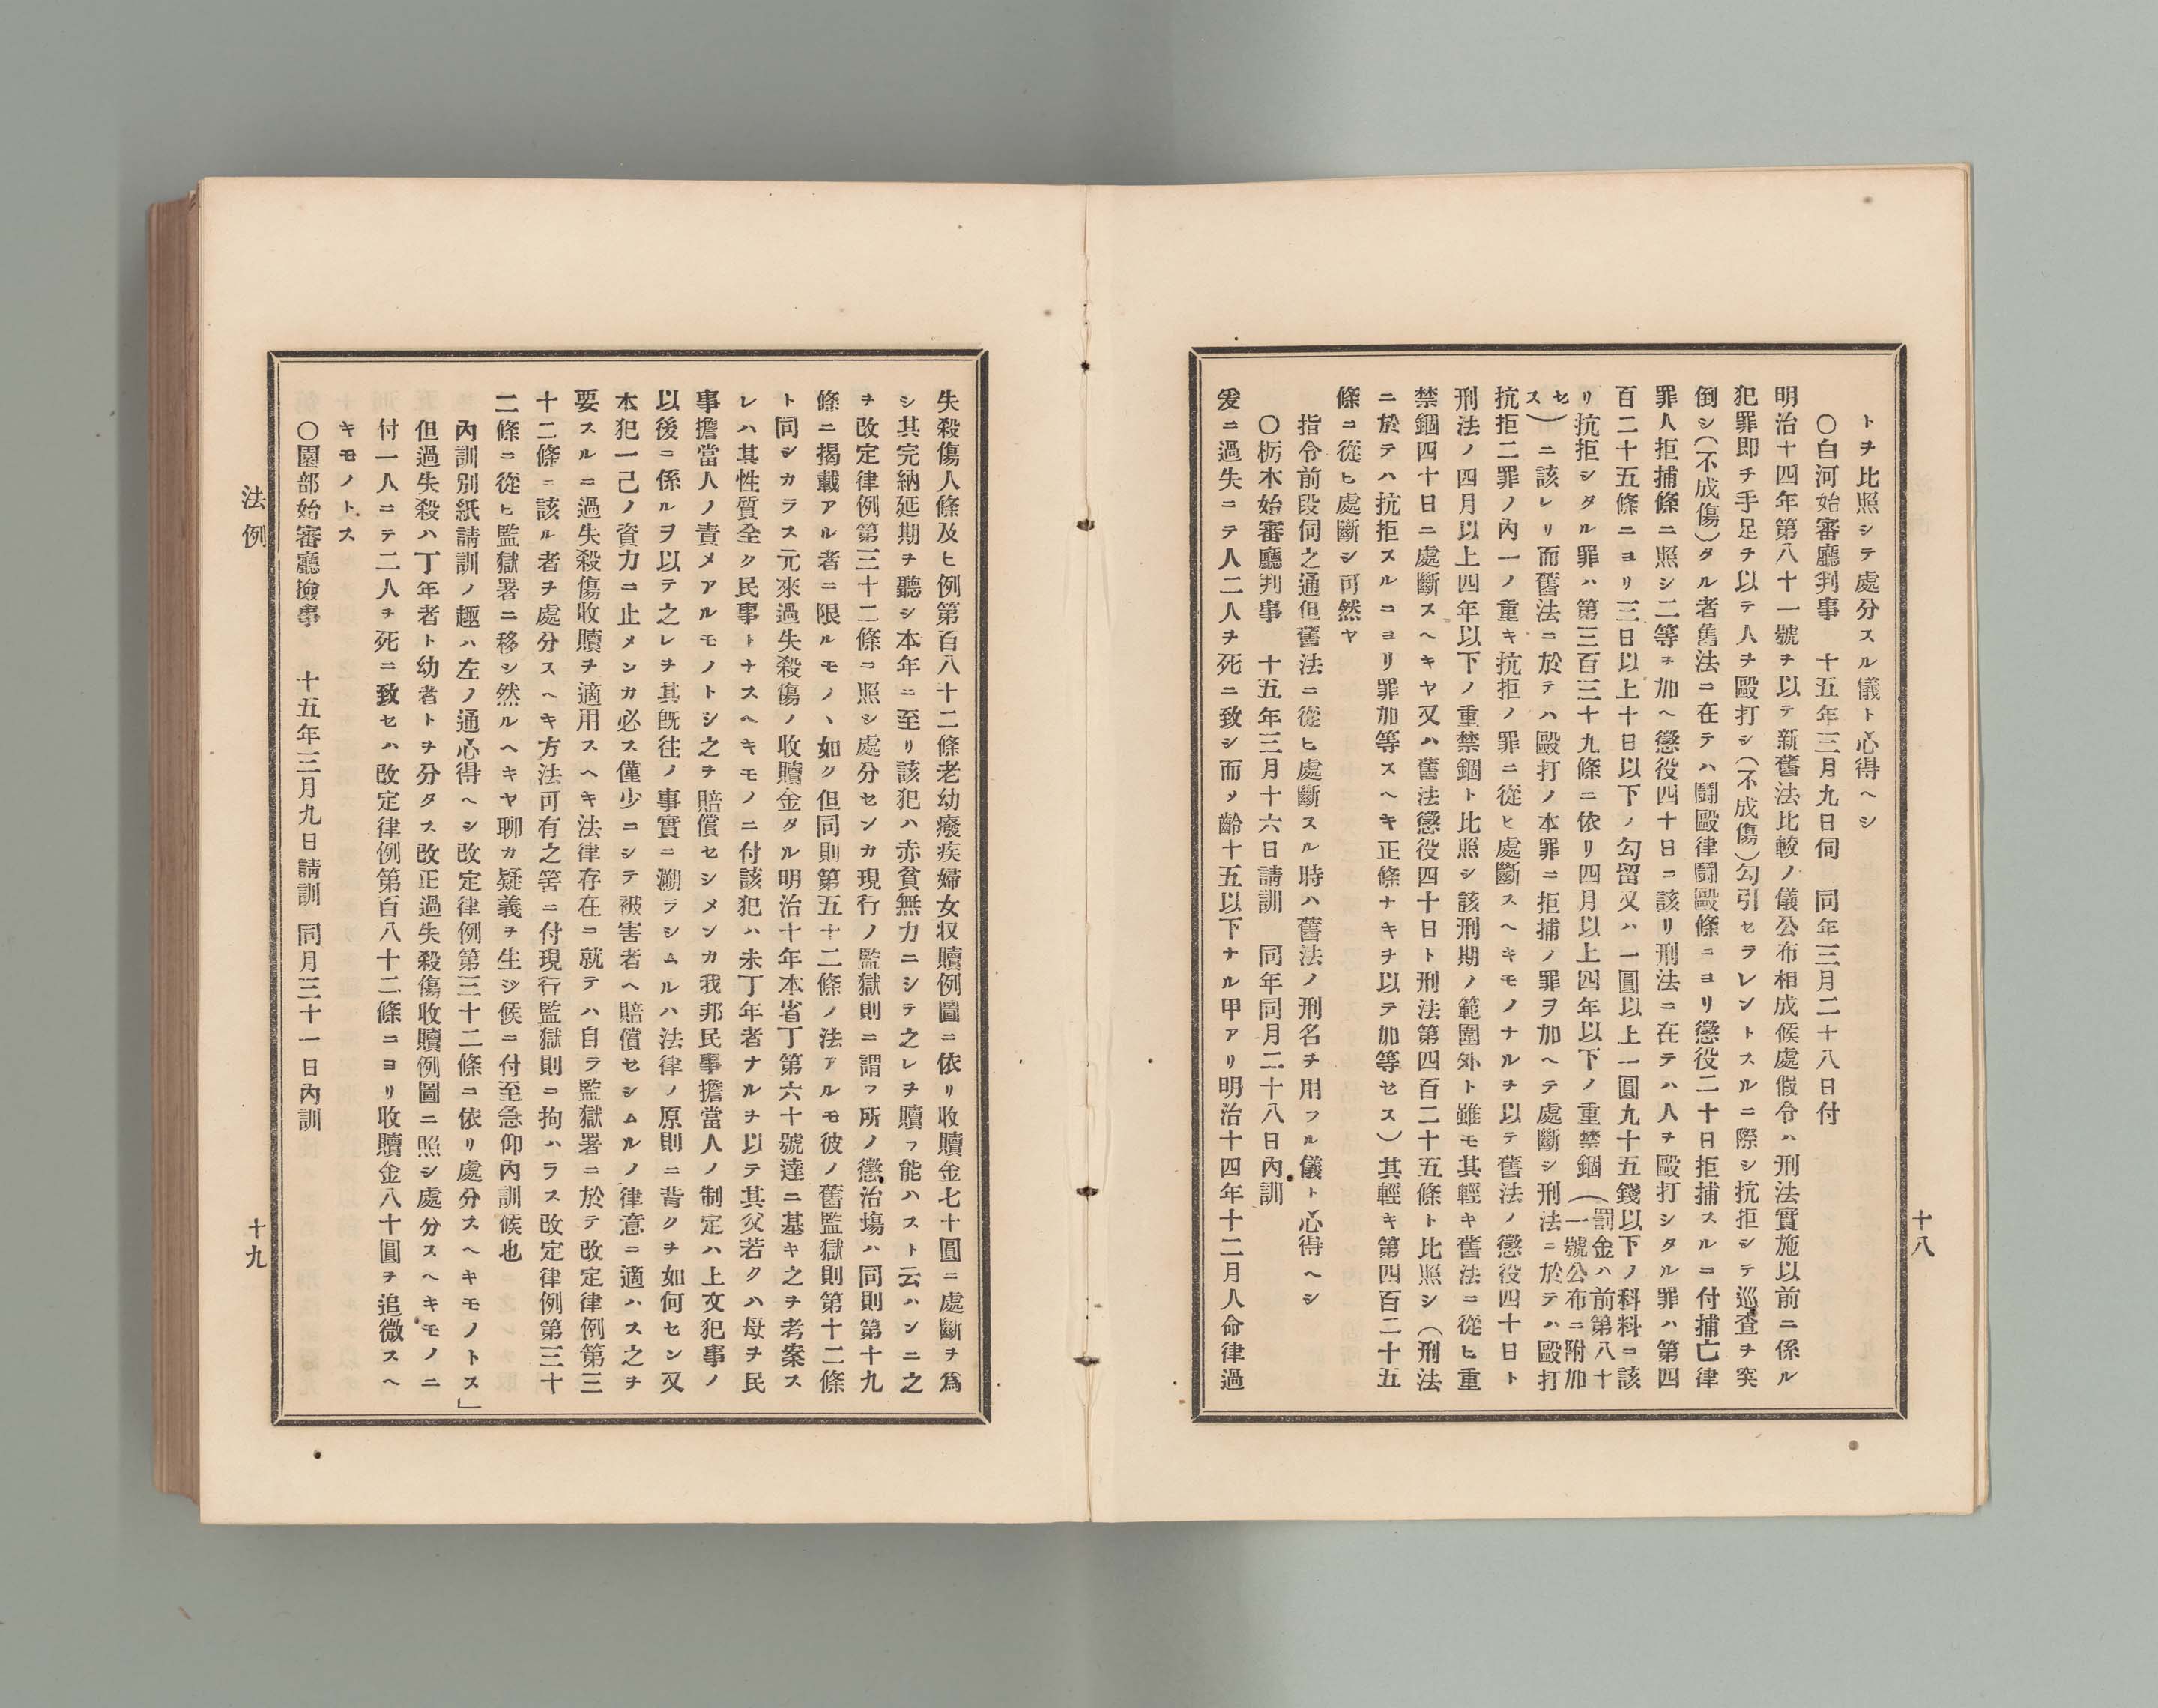 十八
トヲ比照シテ處分スル儀ト心得ヘシ
〇白河始審廳判事　十五年三月九日伺　同年三月二十八日付
明治十四年第八十一號ヲ以テ新舊法比較ノ儀公布相成候處假令ハ刑法實施以前ニ係ル
犯罪即チ手足チ以テ人ヲ毆打シ（不成傷）勾引セラレントスルニ際シ抗拒シテ巡査ヲ突
倒シ（不成傷）タル者舊法ニ在テハ鬪毆律鬪毆條ニヨリ懲役二十日拒捕スルニ付捕亡律
罪人拒捕條ニ照シ二等ヲ加ヘ懲役四十日ニ該リ刑法ニ在テハ人ヲ毆打シタル罪ハ第四
百二十五條ニヨリ三日以上十日以下ノ勾留又ハ一圓以上一圓九十五錢以下ノ科料ニ該
リ抗拒シタル罪ハ第三百三十九條ニ依リ四月以上四年以下ノ重禁錮（罰金ハ前第八十一號公布ニ附加セス）
ニ該レリ而舊法ニ於テハ毆打ノ本罪ニ拒捕ノ罪ヲ加ヘテ處斷シ刑法ニ於テハ毆打
抗拒二罪ノ內一ノ重キ抗拒ノ罪ニ從ヒ處斷スヘキモノナルヲ以テ舊法ノ懲役四十日ト
刑法ノ四月以上四年以下ノ重禁錮ト比照シ該刑期ノ範圍外ト雖モ其輕キ舊法ニ從ヒ重
禁錮四十日ニ處斷スヘキヤ又ハ舊法懲役四十日ト刑法第四百二十五條ト比照シ（刑法
ニ於テハ抗拒スルニヨリ罪加等スヘキ正條ナキヲ以テ加等セス）其輕キ第四百二十五
條ニ從ヒ處斷シ可然ヤ
指令前段伺之通但舊法ニ從ヒ處斷スル時ハ舊法ノ刑名チ用フル儀ト心得ヘシ
〇栃木始審廳判事　十五年三月十六日請訓　同年同月二十八日內訓
爰ニ過失ニテ人二人ヲ死ニ致シ而ソ齡十五以下ナル甲アリ明治十四年十二月人命律過
失殺傷人條及ヒ例第百八十二條老幼癈疾婦女収贖例圖ニ依リ收贖金七十圓ニ處斷ヲ爲
シ其完納延期ヲ聽シ本年ニ至リ該犯ハ赤貧無力ニシテ之レヲ贖フ能ハスト云ハンニ之
ヲ改定律例第三十二條ニ照シ處分センカ現行ノ監獄則ニ謂フ所ノ懲治場ハ同則第十九
條ニ揭載アル者ニ限ルモノヽ如ク但同則第五十二條ノ法アルモ彼ノ舊監獄則第十二條
ト同シカラス元來過失殺傷ノ收贖金タル明治十年本省丁第六十號達ニ基キ之ヲ考案ス
レハ其性質全ク民事トナスヘキモノニ付該犯ハ未丁年者ナルヲ以テ其父若クハ母ヲ民
事擔當人ノ責メアルモノトシ之ヲ賠償セシメンカ我邦民事擔當人ノ制定ハ上文犯事ノ
以後ニ係ルヲ以テ之レヲ其既往ノ事實ニ溯ラシムルハ法律ノ原則ニ背クヲ如何セン又
本犯一己ノ資力ニ止メンカ必ス僅少ニシテ被害者ヘ賠償セシムルノ律意ニ適ハス之ヲ
要スルニ過失殺傷收贖ヲ適用スヘキ法律存在ニ就テハ自ラ監獄署ニ於テ改定律例第三
十二條ニ該ル者ヲ處分スヘキ方法可有之筈ニ付現行監獄則ニ拘ハラス改定律例第三十
二條ニ從ヒ監獄署ニ移シ然ルヘキヤ聊カ疑義ヲ生シ候ニ付至急仰內訓候也
內訓別紙請訓ノ趣ハ左ノ通心得ヘシ改定律例第三十二條ニ依リ處分スヘキモノトス」
但過失殺ハ丁年者ト幼者トヲ分タス改正過失殺傷收贖例圖ニ照シ處分スヘキモノニ
付一人ニテ二人ヲ死ニ致セハ改定律例第百八十二條ニヨリ收贖金八十圓ヲ追徵スヘ
キモノトス
〇園部始審廳撿事　十五年三月九日請訓　同月三十一日內訓
法例
十九